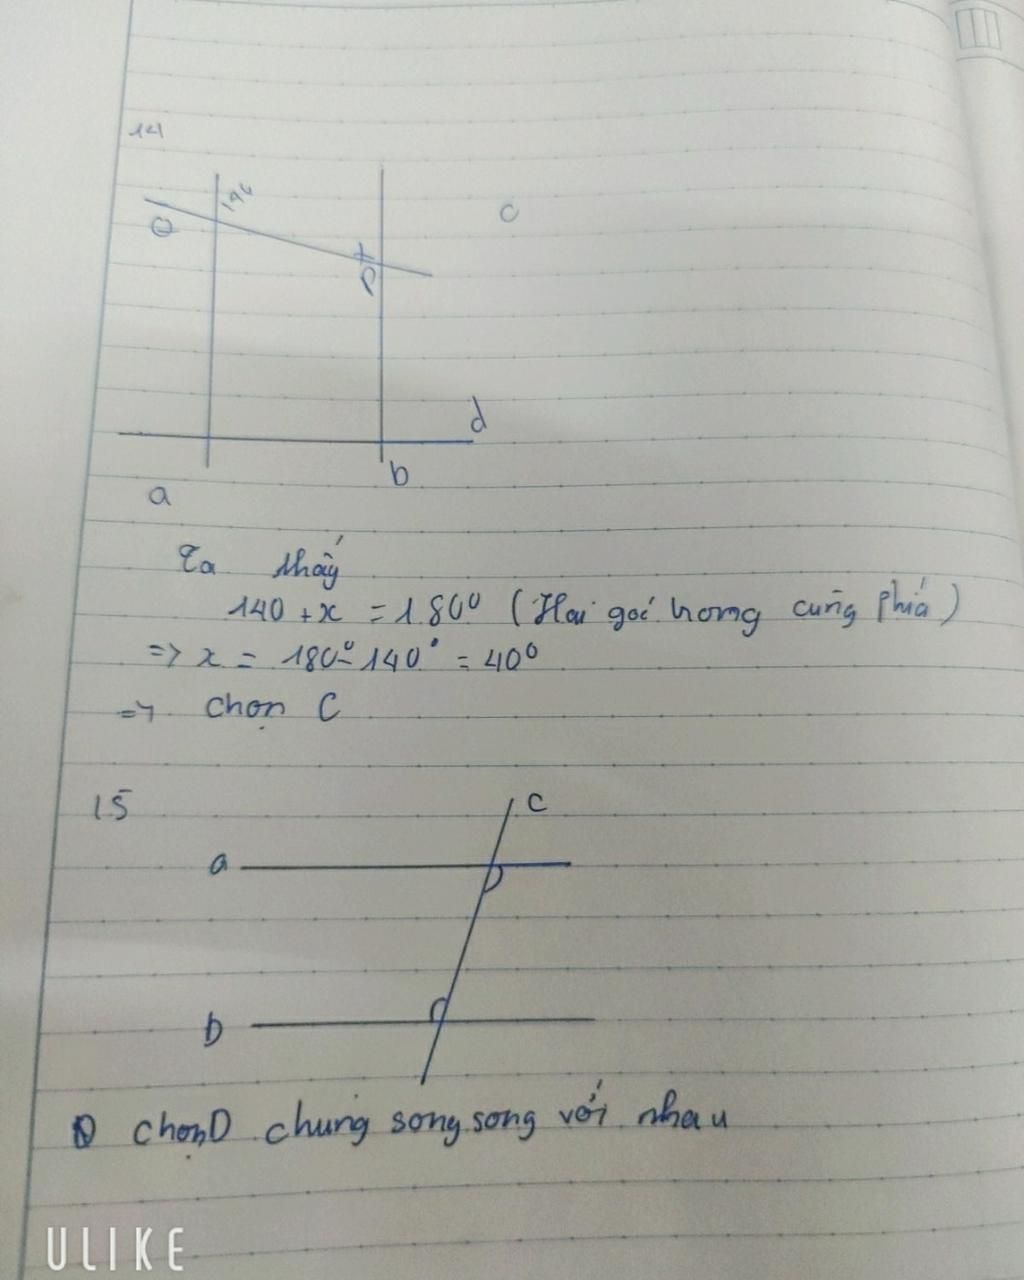 14
140
Q
c
x
P
d
b
a
Ta thấy
140 + x = 180⁰ (Hai goć trong cung̃ phiá)
=> x = 180⁰- 140° = 40⁰
=> chọn C
15
c
a
b
chọn D chung song song với nhau
ULIKE